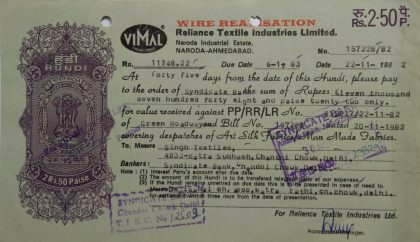 WIRE REALISATION
रु. 2·50 पै.
VIMAL
Reliance Textile Industries Limited.
Naroda Industrial Estate,
NARODA-AHMEDABAD.
No. 157228/82
हुण्डी
HUNDI
Rs. 11748.22 Due Date 6-1-83 22-11-1982
At Forty five days from the date of this Hundi, please pay
to the order of Syndicate Bank the sum of Rupees Eleven thousand
seven hundred forty eight and paise twenty two only.
for value received against PP/RR/LR No. 22-11-82
of Green Roadways and Bill No. dated 20-11-1982
covering despatches of Art Silk Man Made Fabrics.
To Messrs Singh Textiles,
Subhash, Chandni Chowk, Delhi
Bankers: Syndicate Bank, Chandni Chowk, Delhi
Note: (1) Interest Party's account after due date.
(2) The amount of this Hundi is to be transferred telegraphically when realised.
(3) If the Hundi remains unretired on due date this is to be presented in case of need to
within three days from the date of presentation.
2 Rs 50 Paise
SYNDICATE BANK
SYNDICATE
Chandni Chowk Delhi
T. I. B. C. No. 2509
For Reliance Textile Industries Ltd.